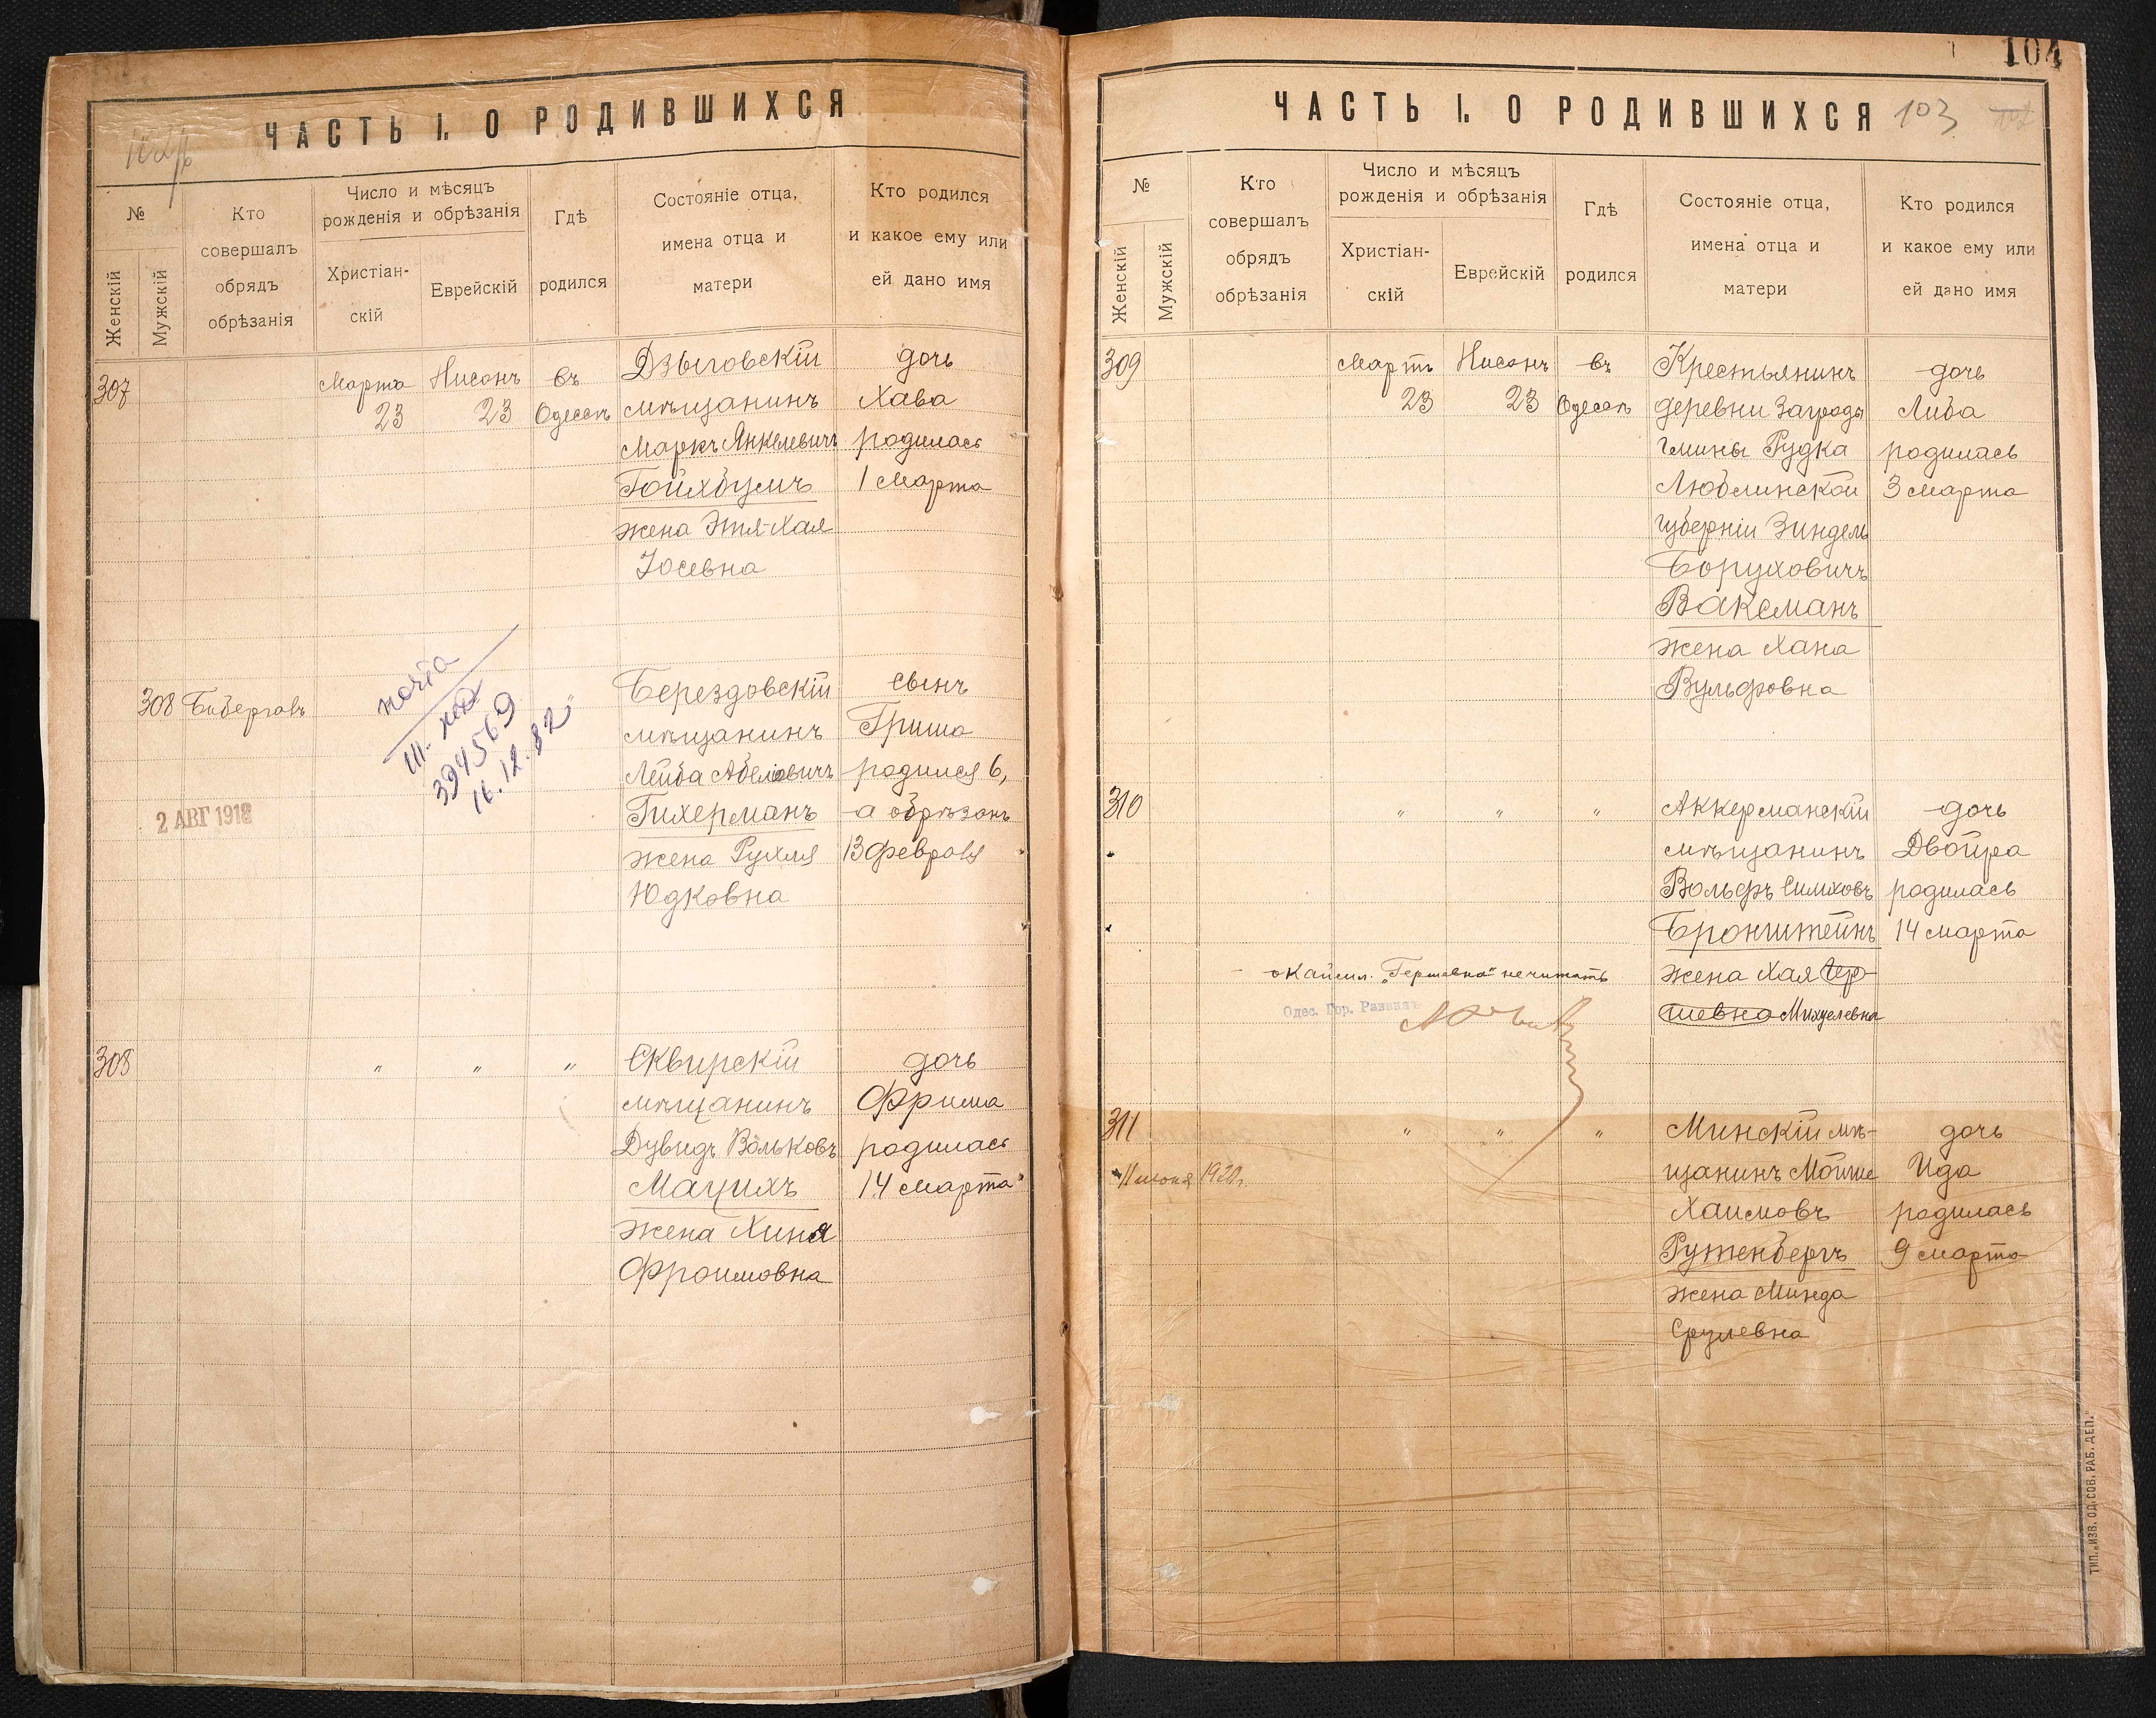 ЧАСТЬ I. О РОДИВШИХСЯ
№
Женскій
Мужскій
Кто
совершалъ
обрядъ
обрѣзанія
Число и мѣсяцъ
рожденія и обрѣзанія
Христіан-
скій
Еврейскій
Гдѣ
родился
Состояніе отца,
имена отца и
матери
Кто родился
и какое ему или
ей дано имя
307
Марта
23
Нисонъ
23
въ
Одессѣ
Дзыговскій
мѣщанинъ
Маркъ Янкелевичъ
Гойхбумъ
жена Этя-Хая
Іосевна
дочь
Хава
родилась
1 Марта
308
почта
394569
16.12.82
2 АВГ 1918
Берездовскій
мѣщанинъ
Лейба Абелювичъ
Гихерманъ
жена Рухля
Юдковна
сынъ
Гриша
родился 6,
а обрѣзанъ
13 февраля
308
" " "
Сквирскій
мѣщанинъ
Дувидъ Вольковъ
Мацихъ
жена Хиня
Фроимовна
дочь
Фрима
родилась
14 Марта
104
ЧАСТЬ I. О РОДИВШИХСЯ 103
№
Женскій
Мужскій
Кто
совершалъ
обрядъ
обрѣзанія
Число и мѣсяцъ
рожденія и обрѣзанія
Христіан-
скій
Еврейскій
Гдѣ
родился
Состояніе отца,
имена отца и
матери
Кто родился
и какое ему или
ей дано имя
309
Мартъ
23
Нисонъ
23
въ
Одессѣ
Крестьянинъ
деревни Заграды
гмины Рудка
Люблинской
губерніи Зиндель
Боруховичъ
Ваксманъ
жена Хана
Вульфовна
дочь
Либа
родилась
3 Марта
310
" " "
Аккерманскій
мѣщанинъ
Вольфъ Симховъ
Бронштейнъ
жена Хая Гер-
шевна Михелевна
дочь
Двойра
родилась
14 марта
"Гершевна" не читать
Одес. Гор. Раввинъ
311
" " "
11 июня 1920 г.
Минскій мѣ-
щанинъ Мойше
Хаимовъ
Рутенбергъ
жена Минда
Срулевна
дочь
Ида
родилась
9 марта
ТИП. „ИЗВ. ОД. СОВ. РАБ. ДЕП."